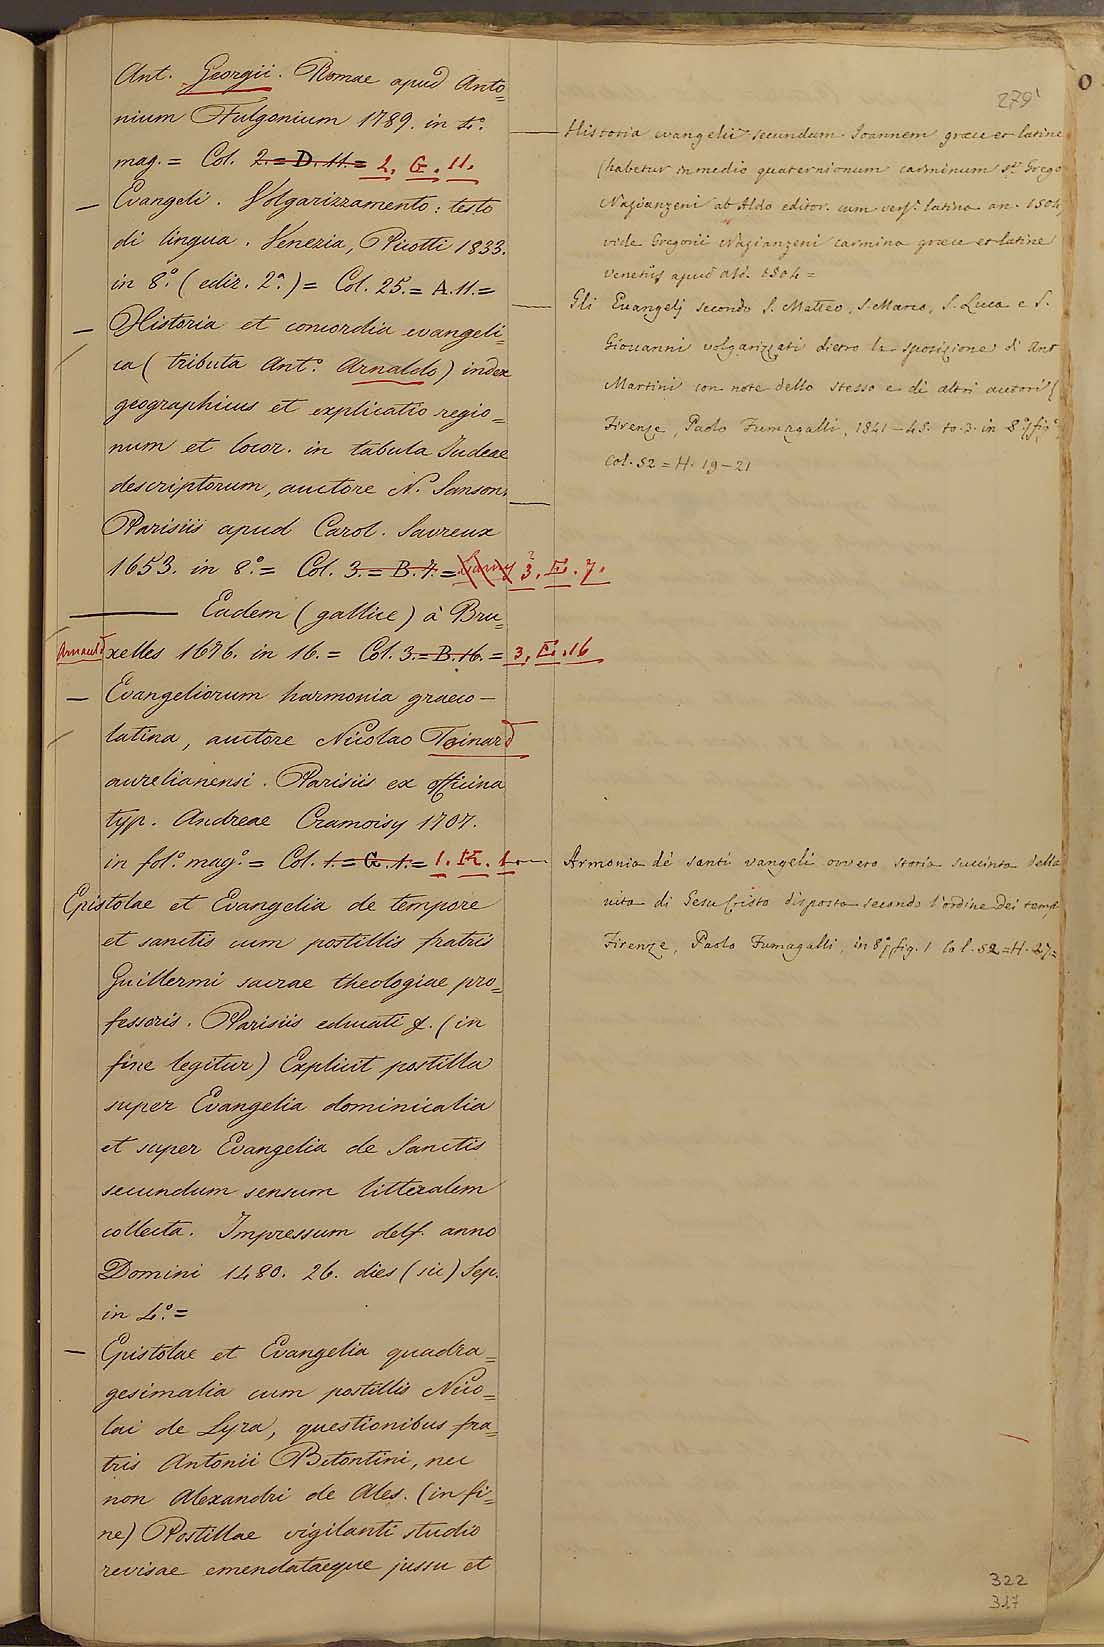 279
Ant. Georgii. Romae apud Anto=
nium Fulgonium 1789. in 4.°
mag. = Col. 2. = D. 11. = 2. G. 11.
— Evangeli. Volgarizzamento: testo
di lingua. Venezia, Picotti 1833.
in 8.° (ediz. 2.ª) = Col. 25. = A. 11. =
— Historia et concordia evangeli=
ca (tributa Ant.° Arnaldo) index
geographicus et explicatio regio=
num et locor. in tabula Iudeae
descriptorum, auctore N. Sanson.
Parisiis apud Carol. Savreux
1653. in 8.° = Col. 3. = B. 7. = 3. E. 7.
——— Eadem (gallice) à Bru=
Arnauld
xelles 1676. in 16. = Col. 3. = B. 16. = 3. E. 16
— Evangeliorum harmonia graeco-
latina, auctore Nicolao Toinard
aurelianensi. Parisiis ex officina
typ. Andreae Cramoisy 1707.
in fol.° mag.° = Col. 1. = G. 1. = 1. K. 1
Epistolae et Evangelia de tempore
et sanctis cum postillis fratris
Guillermi sacrae theologiae pro=
fessoris. Parisiis educati &. (in
fine legitur) Explicit postilla
super Evangelia dominicalia
et super Evangelia de Sanctis
secundum sensum litteralem
collecta. Impressum delf. anno
Domini 1480. 26. dies (sic) Sep.
in 4.° =
— Epistolae et Evangelia quadra=
gesimalia cum postillis Nico=
lai de Lyra, questionibus fra=
tris Antonii Bitontini, nec
non Alexandri de Ales. (in fi=
ne) Postillae vigilanti studio
revisae emendataeque jussu et
— Historia evangelii secundum Joannem graece et latine
(habetur in medio quaternionum carminum S.ti Grego
Nazianzeni ab Aldo editor. cum vers.e latina an. 1504,
vide Gregorii Nazianzeni carmina graece et latine
venetiis apud Ald. 1504 =
— Gli Evangelj secondo S. Matteo, S. Marco, S. Luca e S.
Giovanni volgarizzati dietro la sposizione di Ant
Martini con note dello stesso e di altri autori
Firenze, Paolo Fumagalli, 1841-45. to. 3. in 8.° fig.°
Col. 52 = H. 19-21
— Armonia dè santi vangeli ovvero storia succinta della
vita di Gesu Cristo disposta secondo l'ordine dei tempi
Firenze, Paolo Fumagalli, in 8.° fig. 1 Col. 52 = H. 27 =
322
317